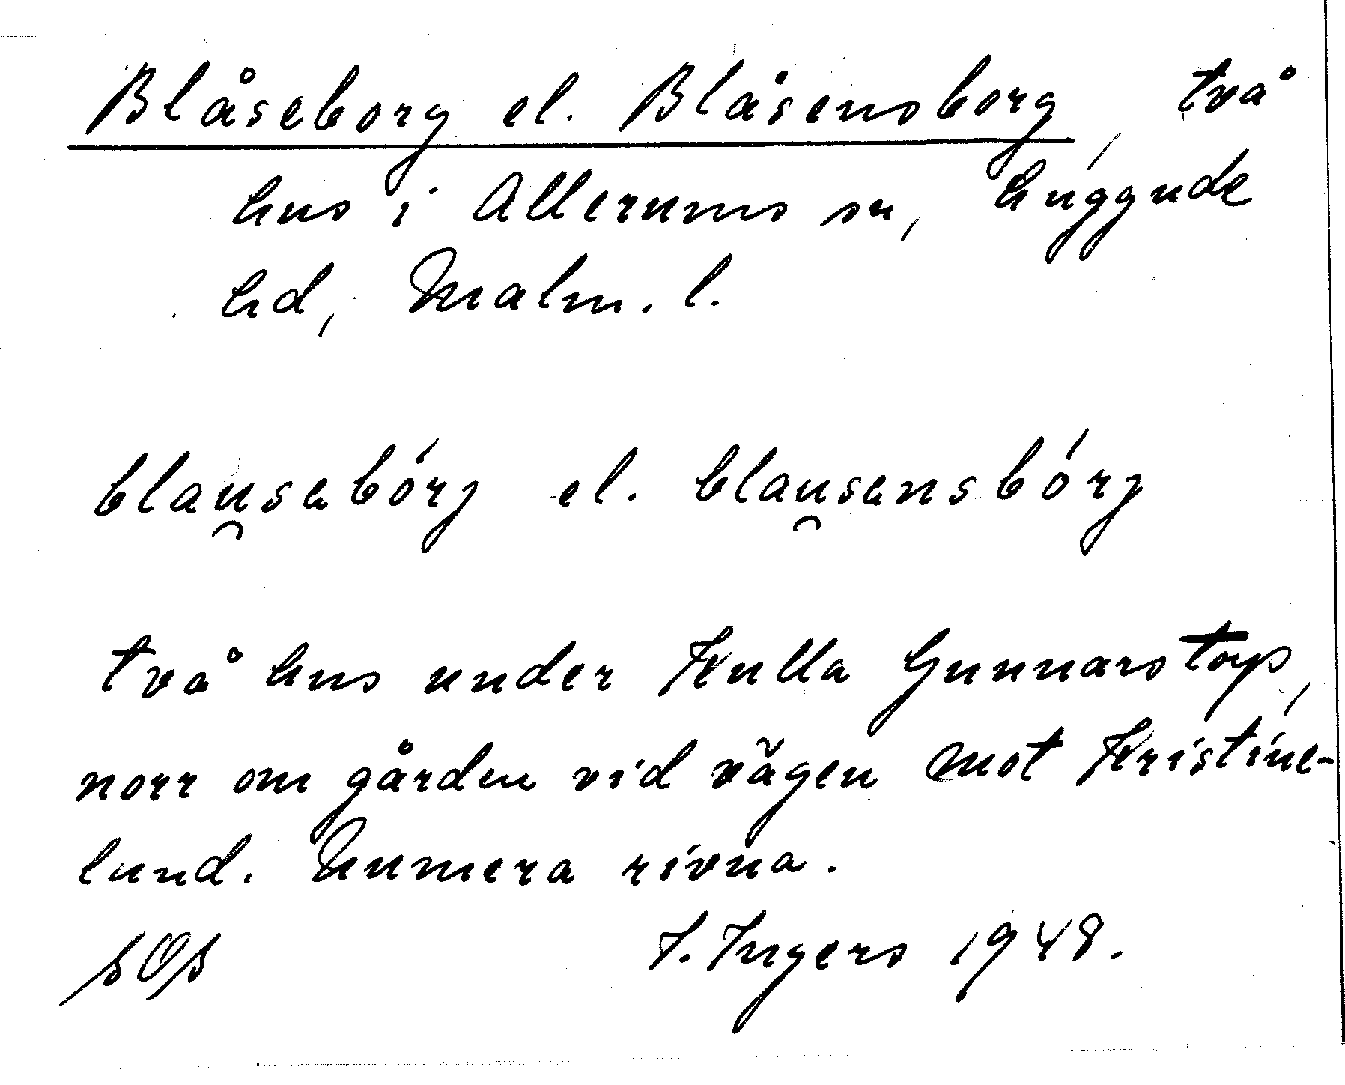 Blåseborg el. Blåsensborg, två
hus i Allerums sn, Luggude
hd, Malm. l.
blau̯sabórj el. blau̯sansbórj
två hus under Kulla Gunnarstorp,
norr om gården vid vägen mot Kristine-
lund. Numera rivna.
SOS I. Ingers 1948.